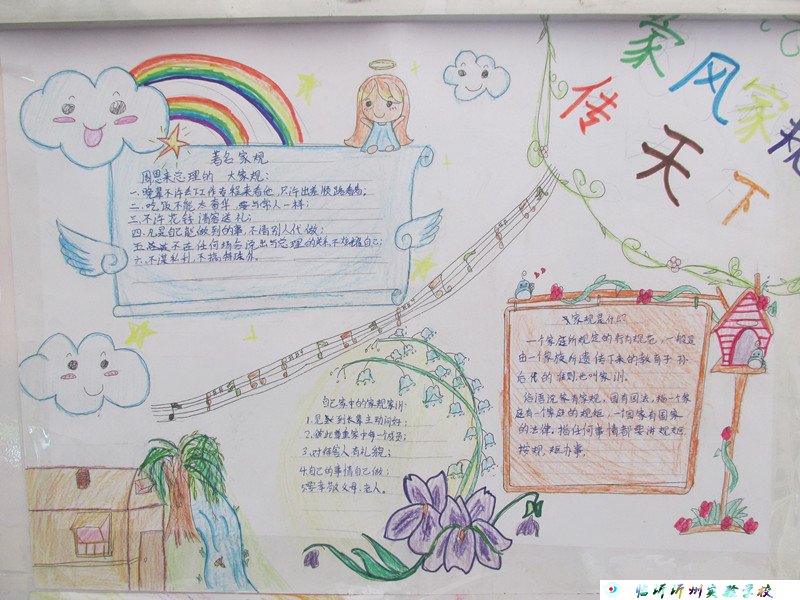 家风家规
传天下
著名家规
周恩来总理的 大家规:
一.晚辈不许去工作专程来看他,只许出差顺路看看;
二.吃饭不能太奢华,要与常人一样;
三.不许花钱请客送礼;
四.凡是自己能做到的事,不请别人代做;
五.不在任何场合说出与总理的关系,不炫耀自己;
六.不谋私利,不搞特殊.
自己家中的家规家训
1.见到长辈主动问好;
2.彼此尊重家中每一个成员;
3.对待客人有礼貌;
4.自己的事情自己做;
5.要孝敬父母.老人。
家规是什么
一个家庭所规定的行为规范,一般是
由一个家族所遗传下来的教育子孙
后代的准则,也叫家训。
俗语说家有家规,国有国法,指一个家
庭有一个家庭的规矩,一个国家有国家
的法律。指任何事情都要讲规矩
按规.矩办事.
临沂沂州实验学校